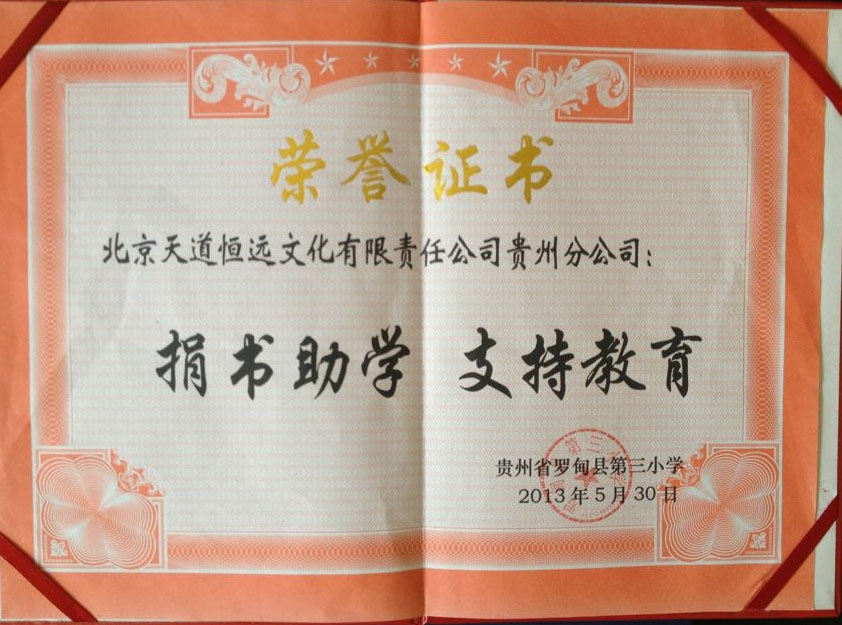 荣誉证书
北京天道恒远文化有限责任公司贵州分公司：
捐书助学 支持教育
贵州省罗甸县第三小学
2013年5月30日